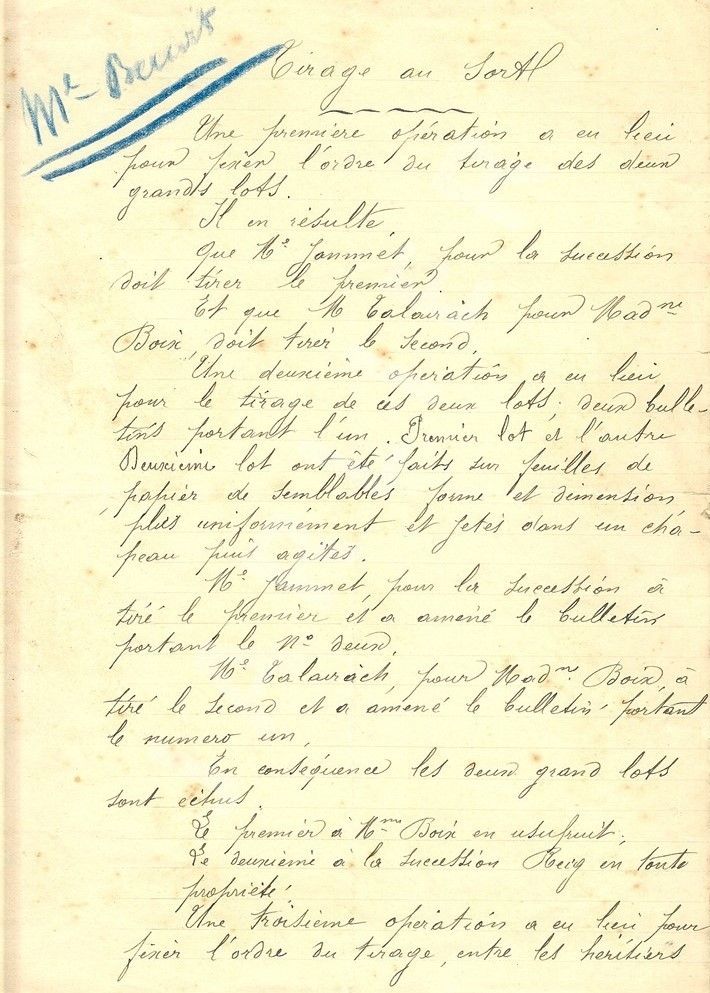 Me Benoit
Tirage au Sort
Une première opération a eu lieu
pour fixer l'ordre du tirage des deux
grands lots.
Il en résulte
que Me Jammet, pour la succession
doit tirer le premier.
Et que M Talairach pour Madme
Boix, doit tirer le second.
Une deuxième opération a eu lieu
pour le tirage de ces deux lots; deux bulle-
tins portant l'un. Premier lot et l'autre
Deuxième lot ont été faits sur feuilles de
papier de semblables forme et dimension
pliés uniformément et jetés dans un cha-
peau puis agités.
Me Jammet, pour la succession à
tiré le premier et a amené le bulletin
portant le No deux.
Me Talairach, pour Madme Boix, à
tiré le second et a amené le bulletin portant
le numero un,
En conséquence les deux grand lots
sont échus
Le premier à Mme Boix en usufruit;
Le deuxième à la succession en toute
propriété.
Une troisième opération a eu lieu pour
fixer l'ordre du tirage, entre les héritiers